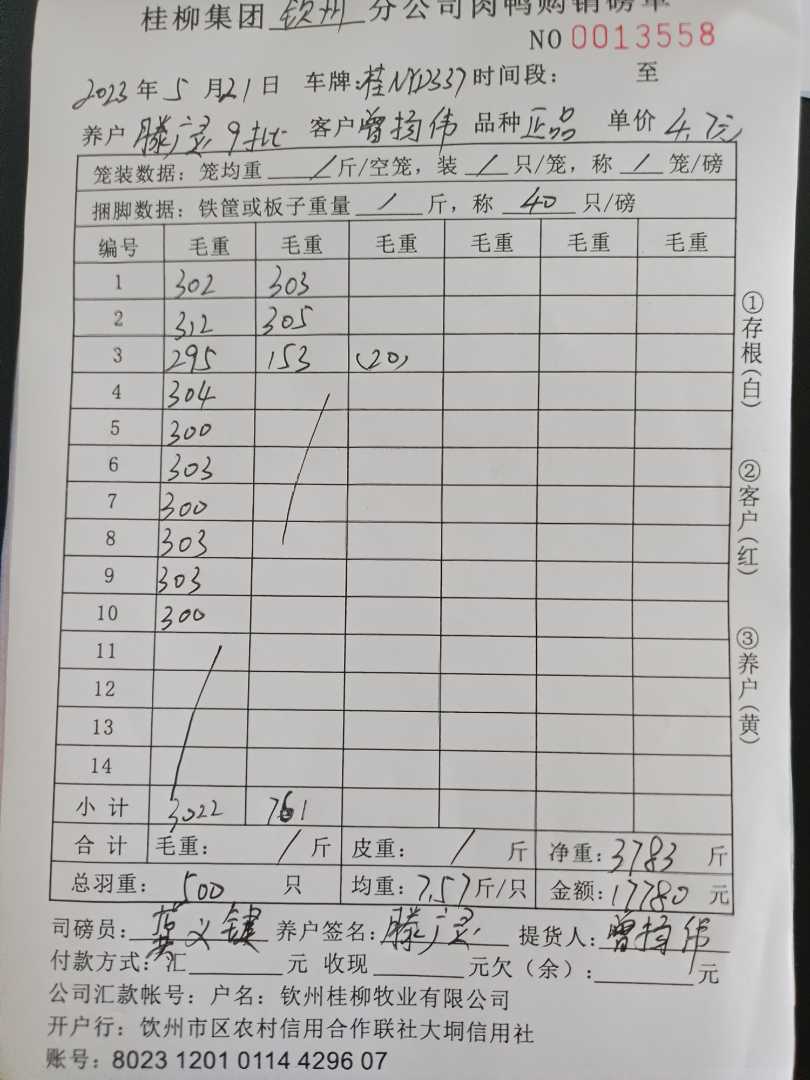 桂柳集团 钦州 分公司肉鸭购销磅单
NO 0013558
2023年5月21日 车牌:桂NY2337 时间段: 至
养户 滕广灵 9批 客户 曾扬伟 品种 正品 单价 4.7元
笼装数据: 笼均重 / 斤/空笼, 装 / 只/笼, 称 / 笼/磅
捆脚数据: 铁筐或板子重量 / 斤, 称 40 只/磅
编号 毛重 毛重 毛重 毛重 毛重 毛重
1 302 303
2 312 305
3 295 153 (20)
4 304
5 300
6 303
7 300
8 303
9 303
10 300
11
12
13
14
小计 3022 761
合计 毛重: / 斤 皮重: / 斤 净重: 3783 斤
总羽重: 500 只 均重: 7.57 斤/只 金额: 17780 元
司磅员: 龚义键 养户签名: 滕广灵 提货人: 曾扬伟
付款方式: 汇 元 收现 元欠(余): 元
公司汇款帐号: 户名: 钦州桂柳牧业有限公司
开户行: 钦州市区农村信用合作联社大垌信用社
账号: 8023 1201 0114 4296 07
①存根(白)
②客户(红)
③养户(黄)